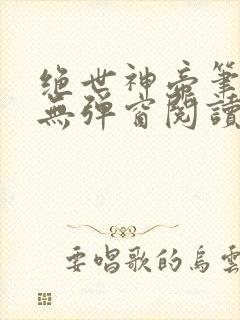 绝世神帝筆
無彈窗閱讀
要唱歌的烏雲